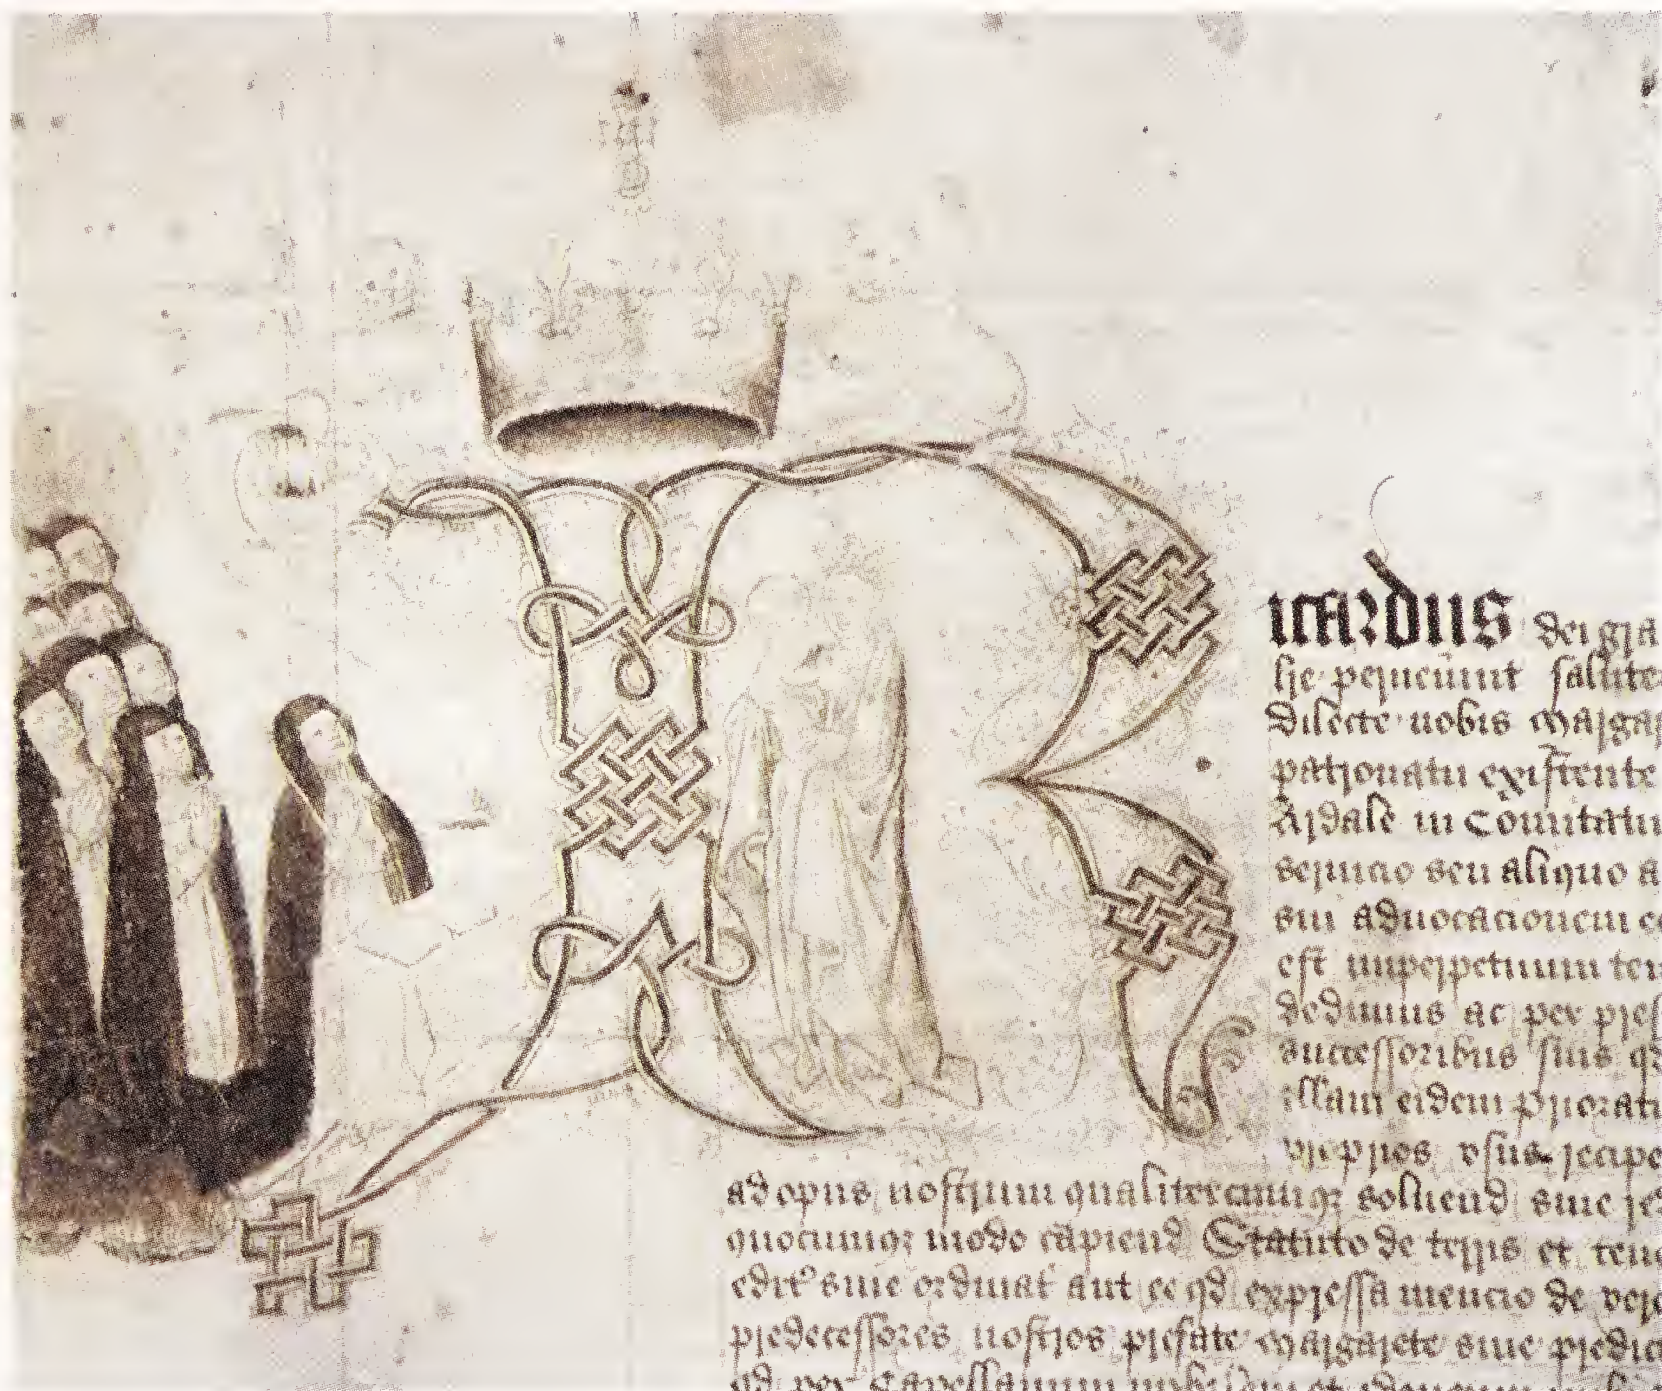 Ricardus dei gra
he pervenerint salute
dilecte nobis Margar
patronatu existente
Ardale in Comitatu
servicio seu aliquo a
sui advocacionem e
est imperpetuum ten
dedimus ac per pres
successoribus suis q
illam eidem Priorati
proprios usus recipe
ad opus nostrum qualitercumq solvend sive re
quocumq modo capiend Statuto de terris et tene
edit sive ordinat aut eo qd expressa mencio de ver
predecessores nostros prefate Margarete sive predic
qd per Capellanum